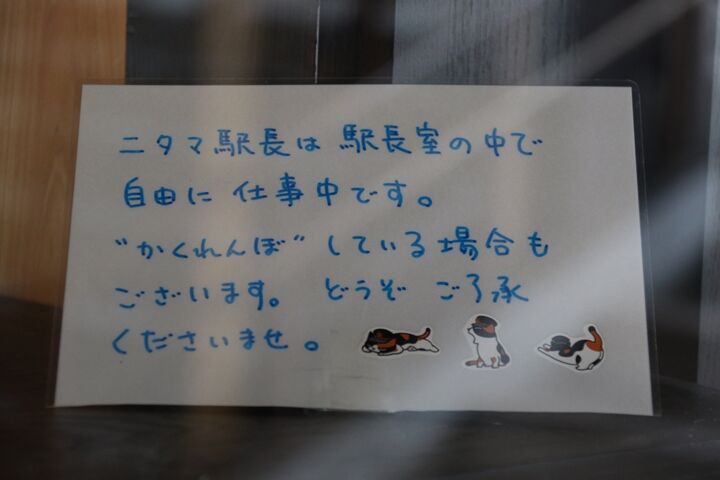 ニタマ駅長は 駅長室の中で
自由に 仕事中です。
"かくれんぼ" している場合も
ございます。 どうぞ ご了承
くださいませ。